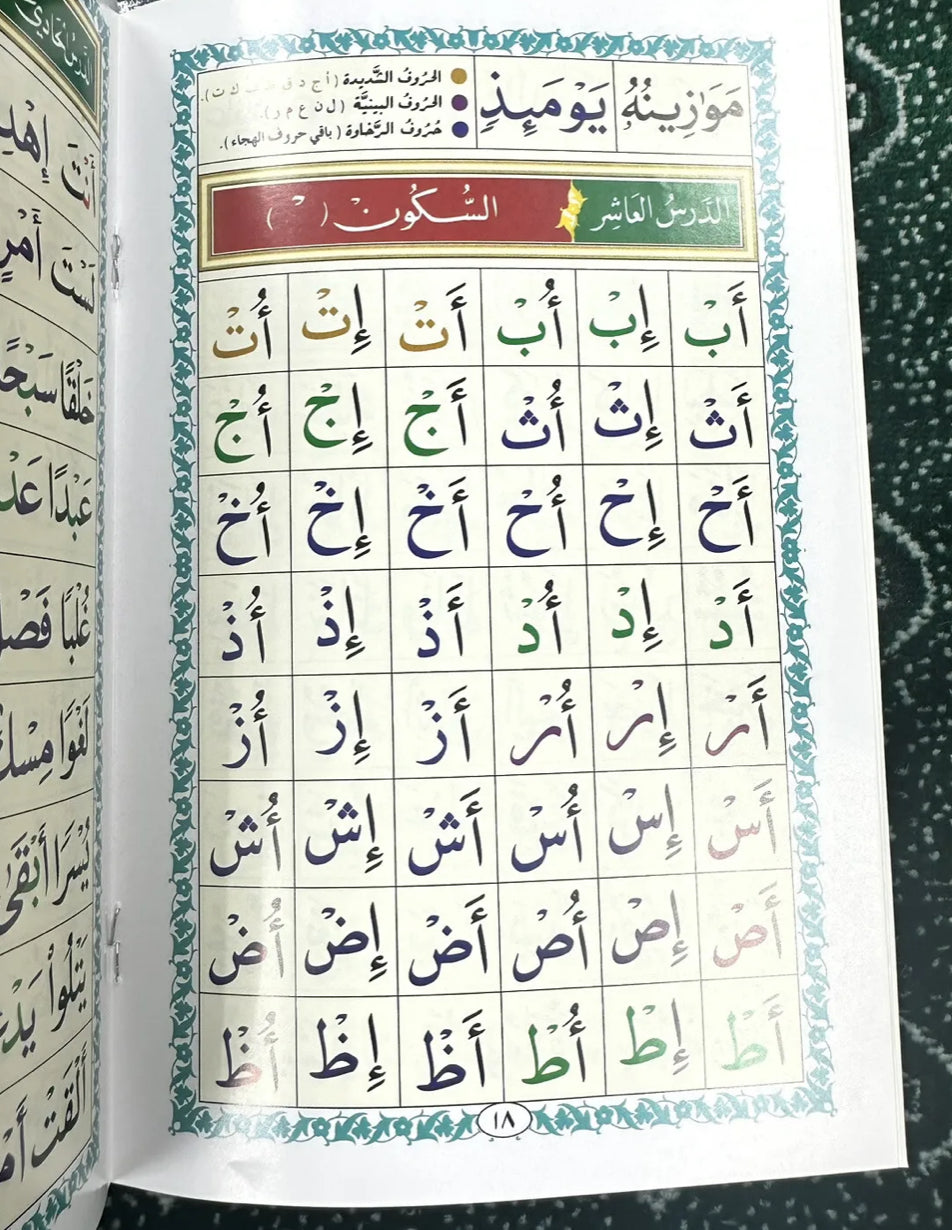 مَوَٰزِينُهُۥ يَوْمَئِذٍ
الحروفُ الشَّديدة ( أ ج د ق ط ب ك ت ).
الحروفُ البينيَّة ( ل ن ع م ر ).
حُروفُ الرَّخاوة ( باقي حروف الهجاء ).
الدَرسُ العَاشِر السُّكُونْ ( ـْ )
أَبْ إِبْ أُبْ أَتْ إِتْ أُتْ
أَثْ إِثْ أُثْ أَجْ إِجْ أُجْ
أَحْ إِحْ أُحْ أَخْ إِخْ أُخْ
أَدْ إِدْ أُدْ أَذْ إِذْ أُذْ
أَرْ إِرْ أُرْ أَزْ إِزْ أُزْ
أَسْ إِسْ أُسْ أَشْ إِشْ أُشْ
أَصْ إِصْ أُصْ أَضْ إِضْ أُضْ
أَطْ إِطْ أُطْ أَظْ إِظْ أُظْ
١٨
الدَرسُ الحَادِي
أَنْتَ إِهْدِ
لَسْتَ أَمْرٍ
خَلْقًا سَبْحًا
عَبْدًا
غُلْبًا
لَغْوًا
يُسْرًا أَبْقَىٰ
يَتْلُوا۟
أَلْقَتْ